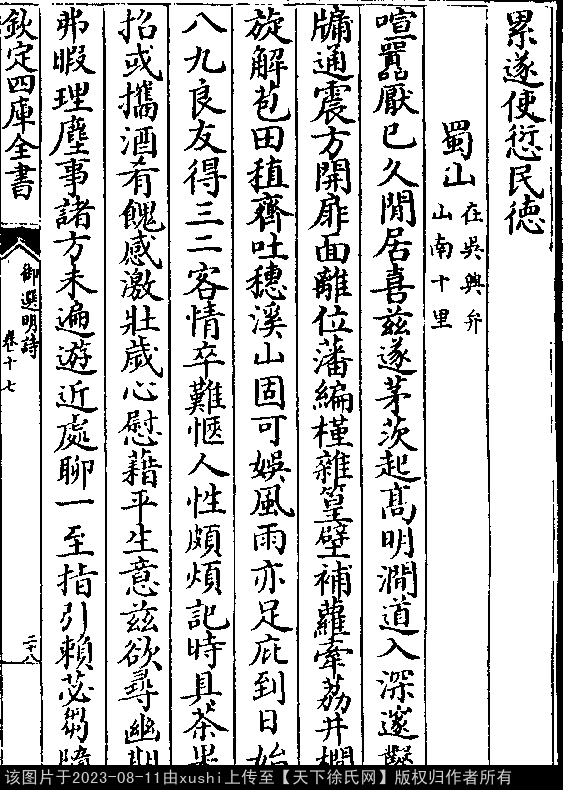 累遂使愆民徳
蜀山
在吳興弁
山南十里
喧囂厭已久閒居喜茲遂茅茨起髙明澗道入深邃
牗通震方開扉面離位藩編槿雜篁壁補蘿牽荔井
旋解苞田稙齊吐穗溪山固可娱風雨亦足庇到日始
八九良友得三二客情卒難愜人性頗煩記時具茶
招或攜酒肴餽感激壯歲心慰藉平生意茲欲尋幽
弗暇理塵事諸方未遍遊近處聊一至指引頼苾芻
欽定四庫全書
御選明詩
卷十七
二十八
该图片于2023-08-11由xushi上传至【天下徐氏网】版权归作者所有